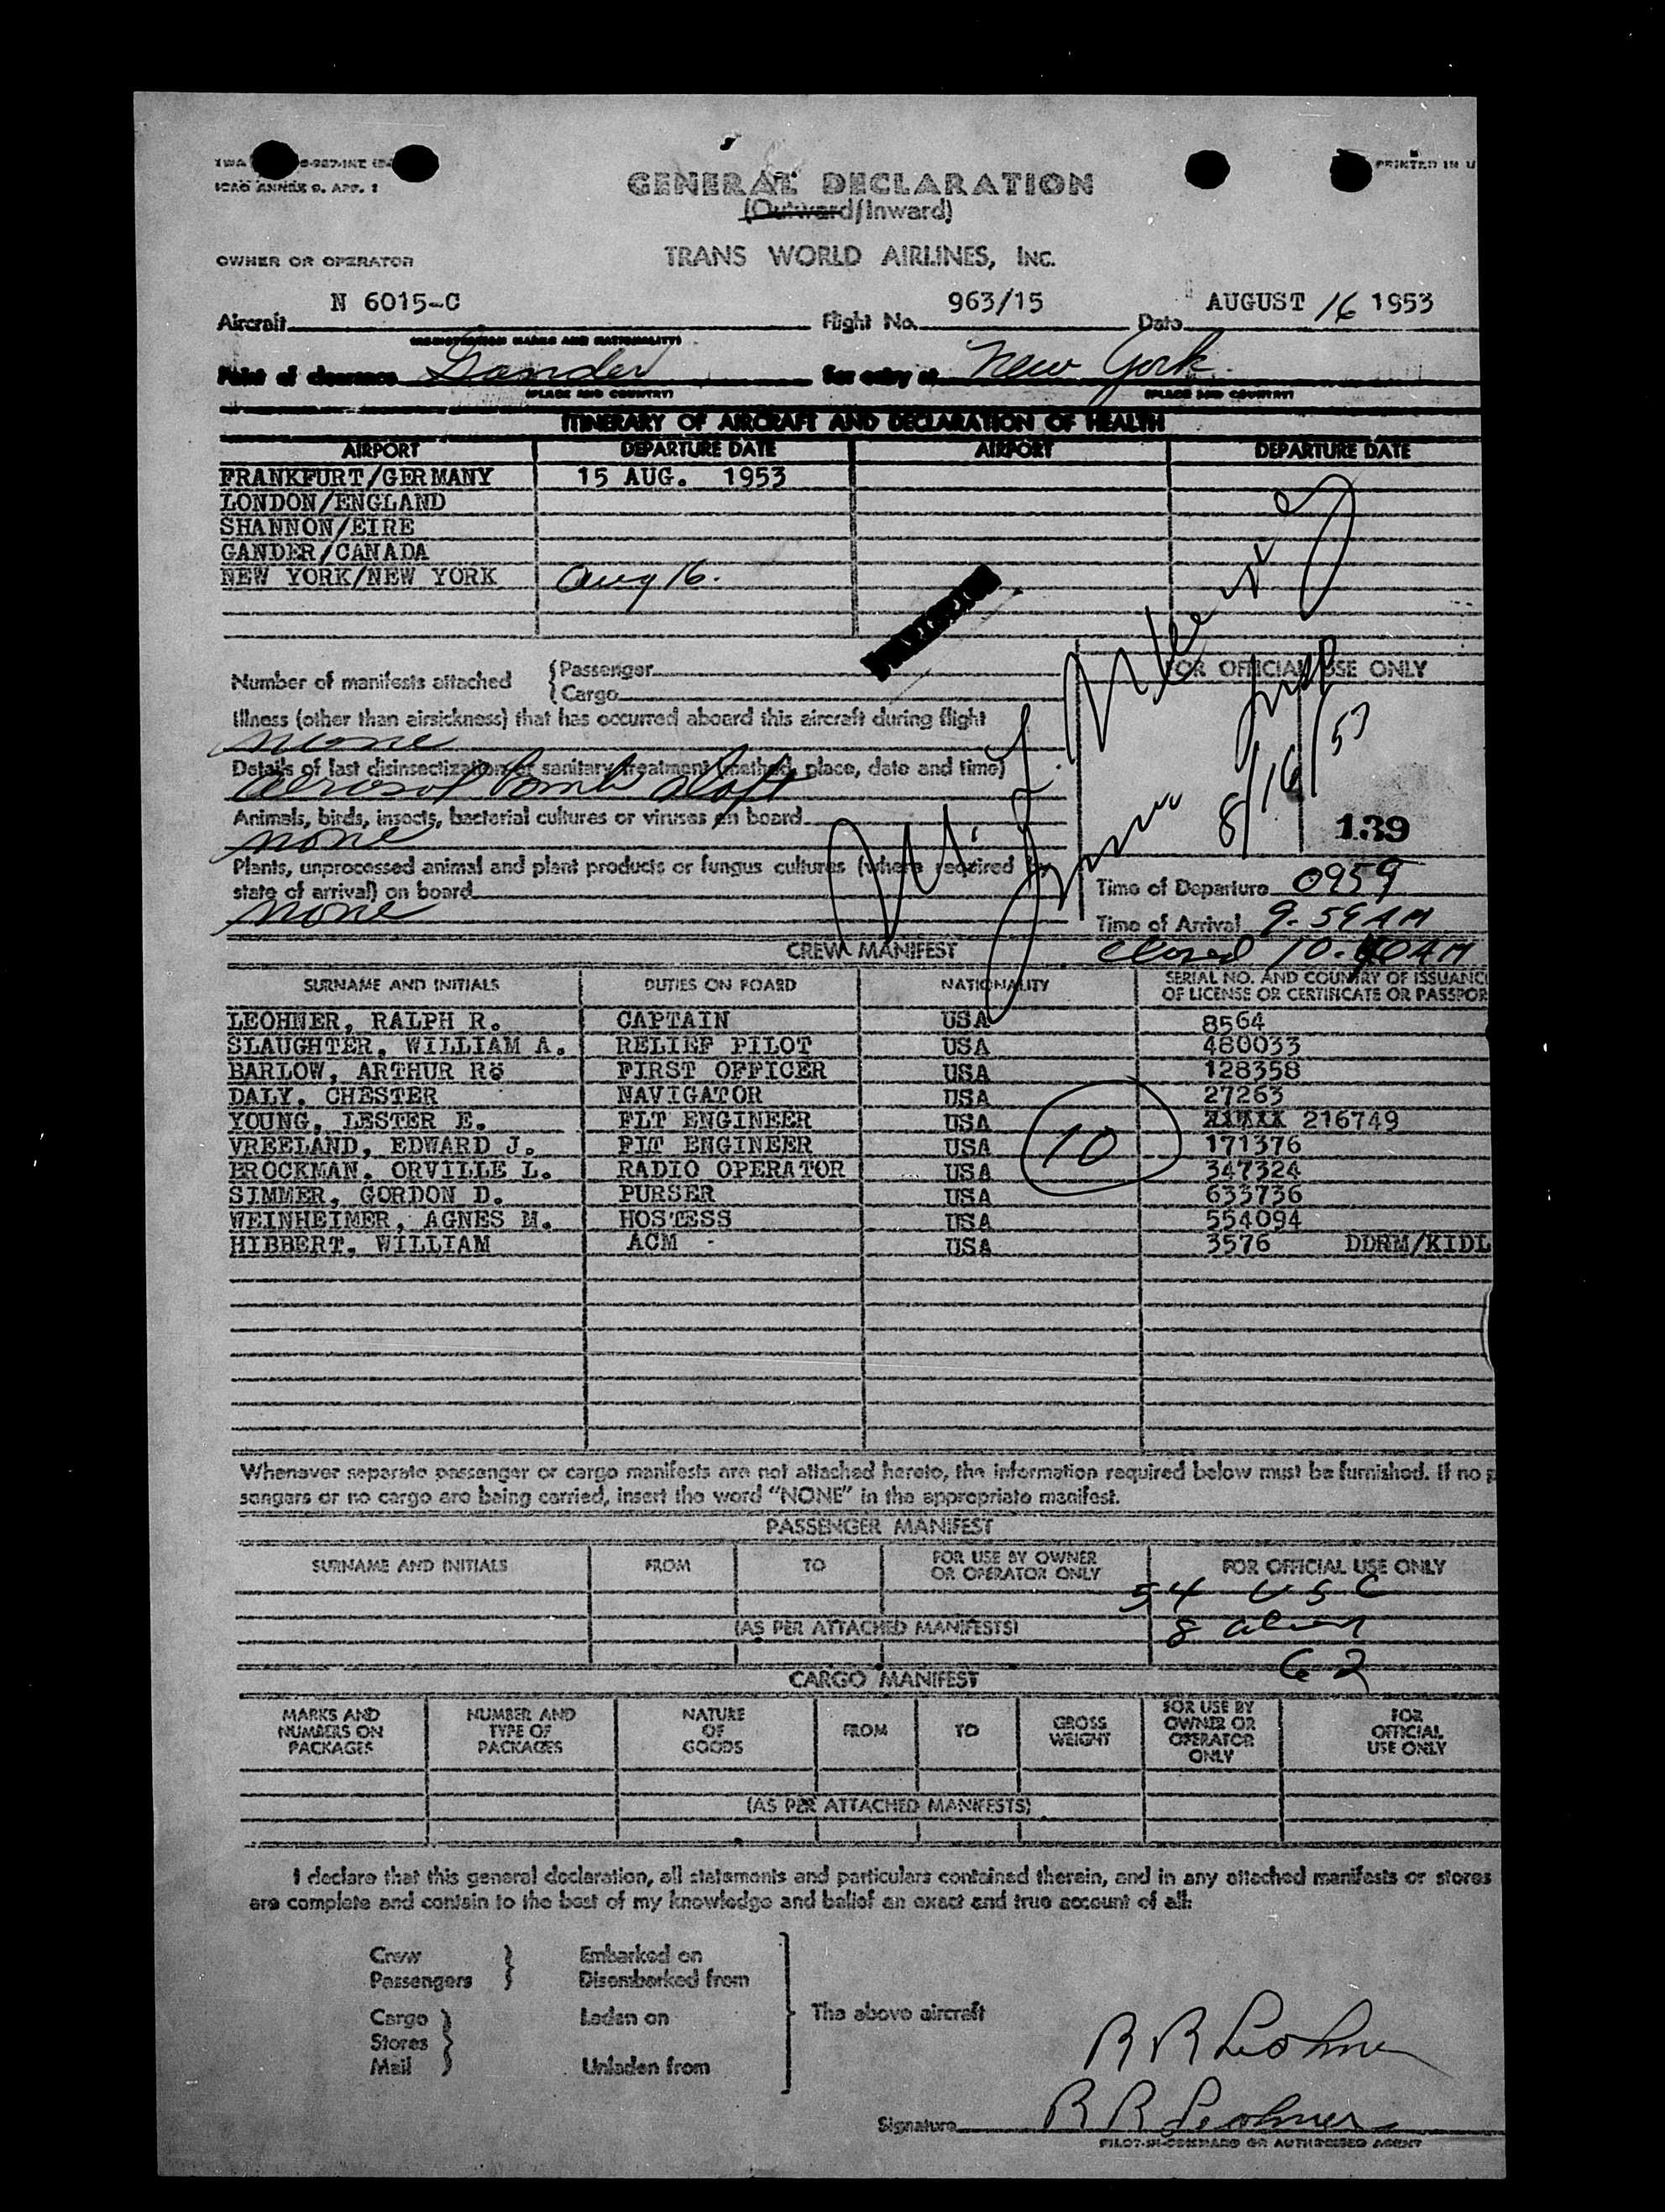 TWA
ICAO ANNEX 9, APP. 1
PRINTED IN U
GENERAL DECLARATION
(Outward/Inward)
OWNER OR OPERATOR TRANS WORLD AIRLINES, INC.
Aircraft N 6015-C Flight No. 963/15 Date AUGUST 16 1953
(REGISTRATION MARKS AND NATIONALITY)
Point of clearance Gander For entry at New York.
(PLACE AND COUNTRY) (PLACE AND COUNTRY)
ITINERARY OF AIRCRAFT AND DECLARATION OF HEALTH
AIRPORT DEPARTURE DATE AIRPORT DEPARTURE DATE
FRANKFURT/GERMANY 15 AUG. 1953
LONDON/ENGLAND
SHANNON/EIRE
GANDER/CANADA
NEW YORK/NEW YORK Aug 16.
Number of manifests attached {Passenger
{Cargo
FOR OFFICIAL USE ONLY
Illness (other than airsickness) that has occurred aboard this aircraft during flight
None
Details of last disinsectization or sanitary treatment (method, place, date and time)
Aerosol bomb aloft
8/16/53
Animals, birds, insects, bacterial cultures or viruses on board
139
None
Plants, unprocessed animal and plant products or fungus cultures (where required by
state of arrival) on board
None
Time of Departure 0959
Time of Arrival 9-59 AM
Closed 10-40 AM
CREW MANIFEST
SURNAME AND INITIALS DUTIES ON BOARD NATIONALITY SERIAL NO. AND COUNTRY OF ISSUANC
OF LICENSE OR CERTIFICATE OR PASSPOR
LEOHNER, RALPH R. CAPTAIN USA 8564
SLAUGHTER, WILLIAM A. RELIEF PILOT USA 480033
BARLOW, ARTHUR R. FIRST OFFICER USA 128358
DALY, CHESTER NAVIGATOR USA 27263
YOUNG, LESTER E. FLT ENGINEER USA 216749
VREELAND, EDWARD J. FLT ENGINEER USA 10 171376
BROCKMAN, ORVILLE L. RADIO OPERATOR USA 347324
SIMMER, GORDON D. PURSER USA 633736
WEINHEIMER, AGNES M. HOSTESS USA 554094
HIBBERT, WILLIAM ACM - USA 3576 DDRM/KIDL
Whenever separate passenger or cargo manifests are not attached hereto, the information required below must be furnished. If no p
sengers or no cargo are being carried, insert the word "NONE" in the appropriate manifest.
PASSENGER MANIFEST
SURNAME AND INITIALS FROM TO FOR USE BY OWNER
OR OPERATOR ONLY FOR OFFICIAL USE ONLY
54 USC
(AS PER ATTACHED MANIFESTS) 8 alien
62
CARGO MANIFEST
MARKS AND
NUMBERS ON
PACKAGES
NUMBER AND
TYPE OF
PACKAGES
NATURE
OF
GOODS
FROM
TO
GROSS
WEIGHT
FOR USE BY
OWNER OR
OPERATOR
ONLY
FOR
OFFICIAL
USE ONLY
(AS PER ATTACHED MANIFESTS)
I declare that this general declaration, all statements and particulars contained therein, and in any attached manifests or stores
are complete and contain to the best of my knowledge and belief an exact and true account of all:
Crew } Embarked on
Passengers } Disembarked from
Cargo } Laden on The above aircraft
Stores
Mail } Unladen from
R R Leohner
Signature R R Leohner
PILOT-IN-COMMAND OR AUTHORISED AGENT